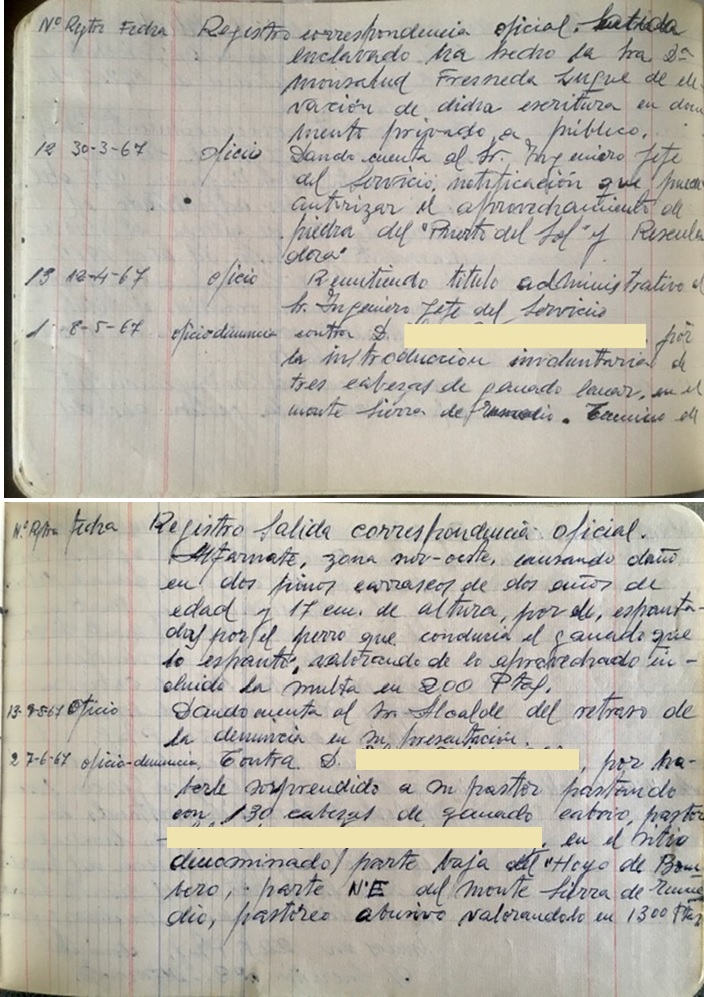 Nº Rgtro Fecha Registro correspondencia oficial. Salida
enclavado ha hecho la Sra Dª
Monsalud Fresneda Luque de ele-
vación de dicha escritura en docu
mento privado a público.
12 30-3-67 oficio Dando cuenta al Sr. Ingeniero Jefe
del Servicio, notificación que puede
autorizar el aprovechamiento de
piedra del "Puerto del Sol" y
dora"
13 12-4-67 oficio Remitiendo titulo administrativo al
Sr. Ingeniero Jefe del Servicio
1 8-5-67 oficio denuncia contra D. por
la introduccion involuntaria de
tres cabezas de ganado lanar, en el
monte Sierra de Remedio. Termino de
Nº Rgtro Fecha Registro Salida correspondencia oficial.
Alfarnate, zona nor-oeste, causando daño
en dos pinos carrascos de dos años de
edad y 17 cm. de altura, por de, espanta-
das por el perro que conducia el ganado que
lo espantó, valorando de lo aprovechado in-
cluido la multa en 200 Ptas.
13-8-5-67 Oficio Dando cuenta al Sr Alcalde del retraso de
la denuncia en su presentación.
2 7-6-67 oficio-denuncia, Contra D. , por ha-
berle sorprendido a su pastor pastando
con 130 cabezas de ganado cabrio, pastor
, en el sitio
denominado/ parte baja del "Hoyo de Bom-
bero, parte N.E del monte Sierra de reme
dio, pastoreo abusivo valorandolo en 1300 Ptas